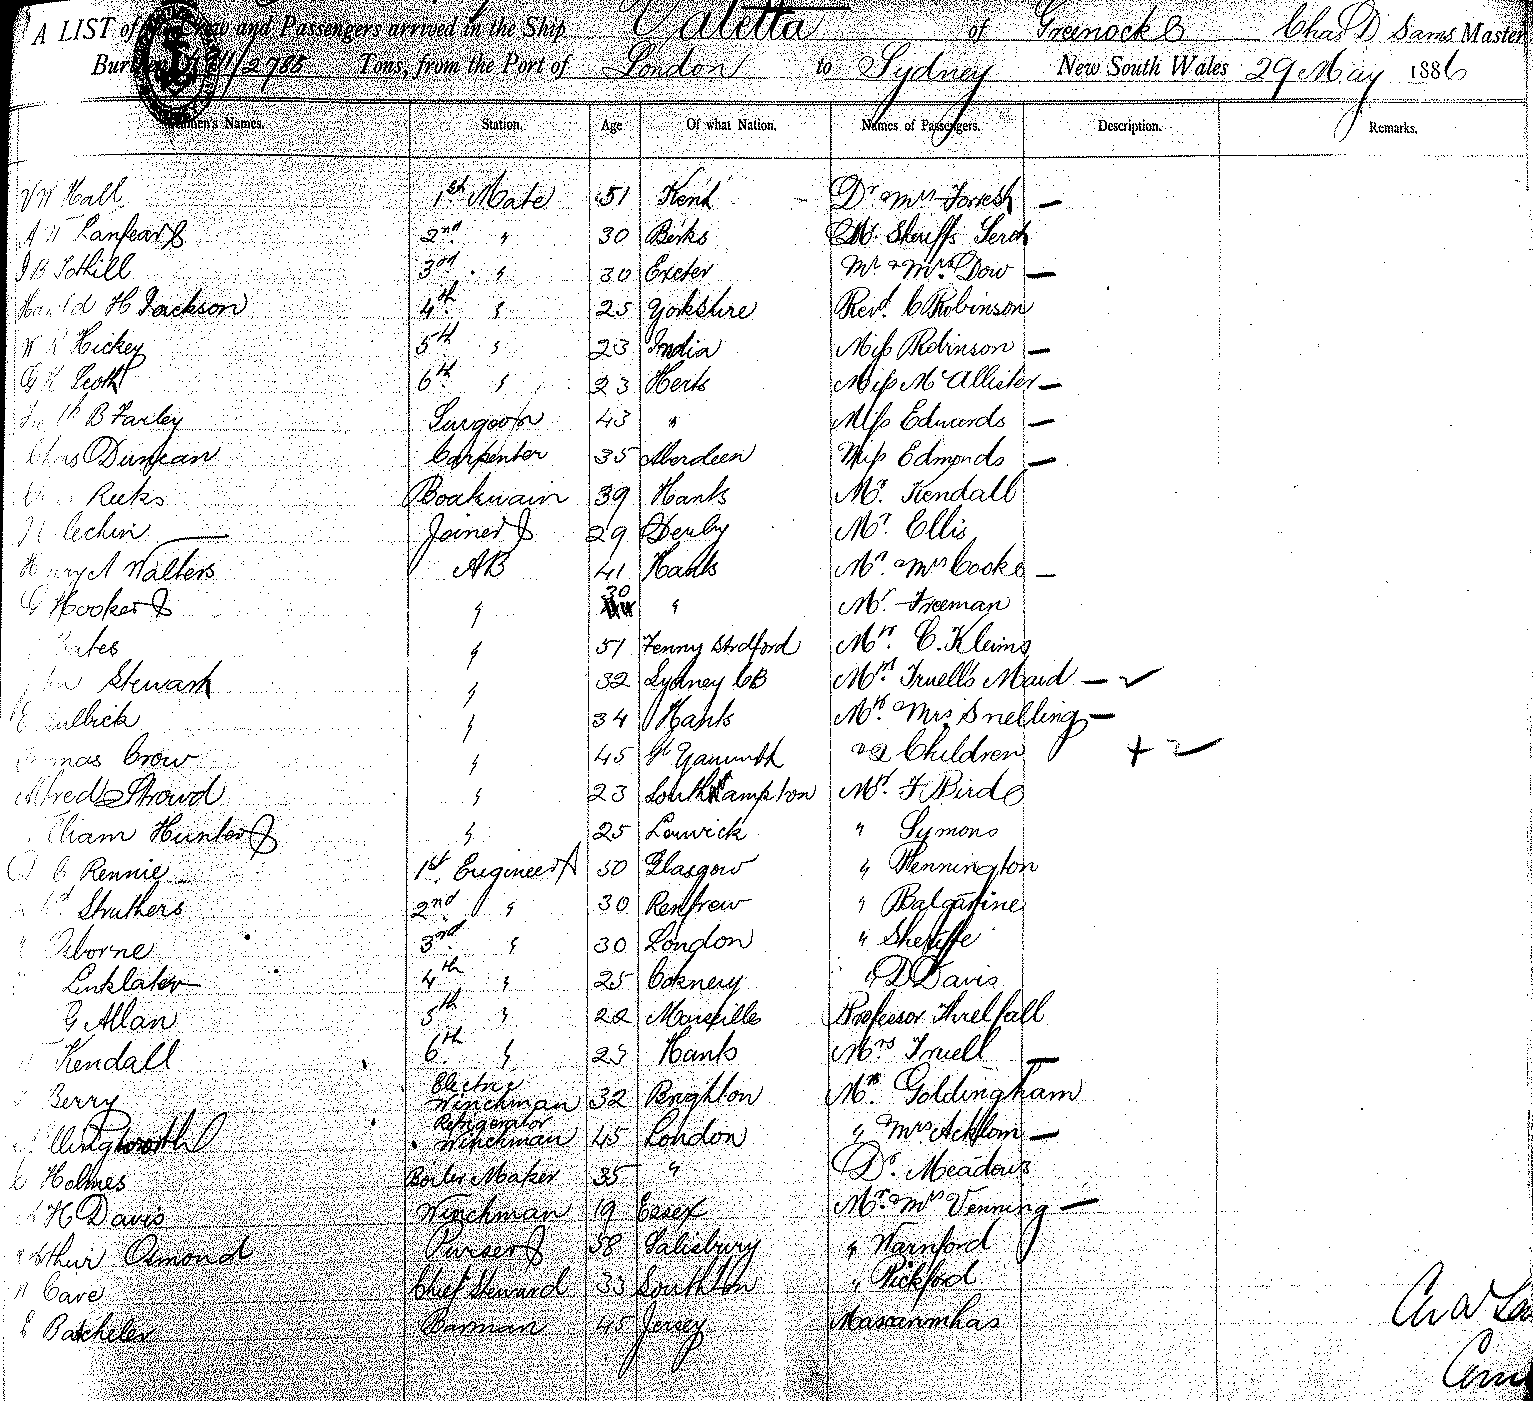 A LIST of the Crew and Passengers arrived in the Ship Valetta of Greenock Chas D Sams Master
Burthen 2785 Tons, from the Port of London to Sydney New South Wales 29 May 1886
Names. Station. Age Of what Nation. Names of Passengers. Description. Remarks.
Hall 1st Mate 51 Kent Dr & Mrs Forrest —
Lanfear 2nd " 30 Berks Mr. Sheriffs
Tothill 3rd " 30 Exeter Mr & Mrs Dow —
Harold H Jackson 4th " 25 Yorkshire Revd. C Robinson
Hickey 5th " 23 India Miss Robinson —
Scott 6th " 23 Herts Miss McAllister —
B Farley Surgeon 43 " Miss Edwards —
Chas Duncan Carpenter 35 Aberdeen Miss Edmonds —
Reeks Boatswain 39 Hants Mr. Kendall
Joiner 29 Derby Mr Ellis
Henry A Walters AB 41 Hants Mr. & Mrs Cooke —
G Hooker " 30 " Mr. Freeman
" 51 Fenny Stratford Mr C. Kleims
Stewart " 32 Sydney CB Mrs Truell's Maid — ✓
" 34 Hants Mr. & Mrs Snelling —
Thomas Crow " 45 Gt Yarmouth & 2 Children + 2
Alfred Strowd " 23 Southampton Mr. F Bird
William Hunter " 25 Lerwick " Symons
Rennie 1st Engineer 50 Glasgow " Pennington
Struthers 2nd " 30 Renfrew "
Osborne 3rd " 30 London " Sheriffe
Linklater 4th " 25 Orkney " D Davis
G Allan 5th " 22 Marseilles Professor Threlfall
Kendall 6th " 25 Hants Mrs Truell —
Berry Electric Winchman 32 Brighton Mr. Goldingham
Illingworth Refrigerator Winchman 45 London " & Mrs Acklom —
Holmes Boiler Maker 35 " Dr. Meadows
H Davis Winchman 19 Essex Mr. & Mrs Venning —
Arthur Osmond Purser 38 Salisbury " Warnford
Cave Chief Steward 33 Southton " Pickford
Batchelor Barman 45 Jersey